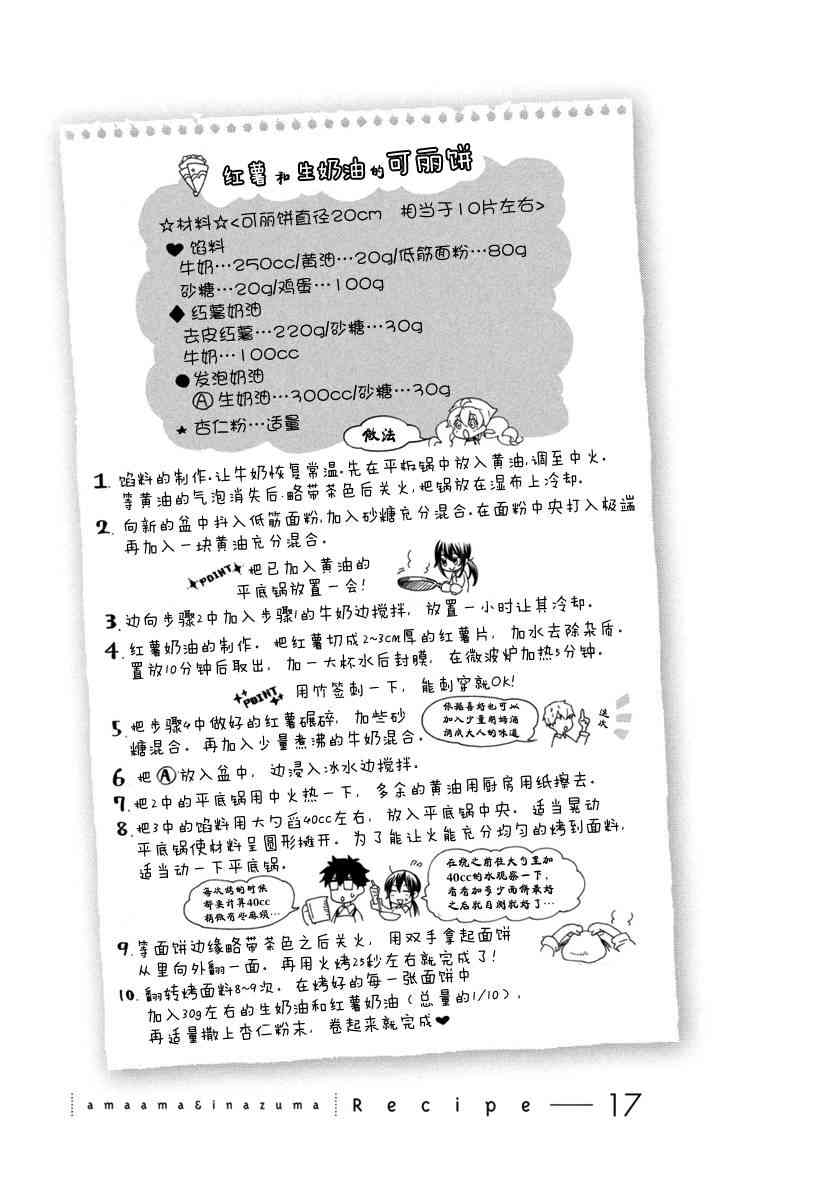 红薯和生奶油的可丽饼
☆材料☆<可丽饼直径20cm 相当于10片左右>
♥馅料
牛奶…250cc/黄油…20g/低筋面粉…80g
砂糖…20g/鸡蛋…100g
◆红薯奶油
去皮红薯…220g/砂糖…30g
牛奶…100cc
●发泡奶油
Ⓐ生奶油…300cc/砂糖…30g
★杏仁粉…适量
做法
1. 馅料的制作.让牛奶恢复常温.先在平板锅中放入黄油,调至中火.
等黄油的气泡消失后.略带茶色后关火,把锅放在湿布上冷却.
2. 向新的盆中抖入低筋面粉,加入砂糖充分混合.在面粉中央打入极端
再加入一块黄油充分混合.
POINT 把已加入黄油的
平底锅放置一会!
3. 边向步骤2中加入步骤1的牛奶边搅拌, 放置一小时让其冷却.
4. 红薯奶油的制作. 把红薯切成2~3cm厚的红薯片, 加水去除杂质.
置放10分钟后取出, 加一大杯水后封膜, 在微波炉加热5分钟.
POINT 用竹签刺一下, 能刺穿就OK!
5. 把步骤4中做好的红薯碾碎, 加些砂
糖混合. 再加入少量煮沸的牛奶混合.
依据喜好也可以
加入少量朗姆酒
调成大人的味道
这次
6 把Ⓐ放入盆中, 边浸入冰水边搅拌.
7. 把2中的平底锅用中火热一下, 多余的黄油用厨房用纸擦去.
8. 把3中的馅料用大勺舀40cc左右, 放入平底锅中央. 适当晃动
平底锅使材料呈圆形摊开. 为了能让火能充分均匀的烤到面料,
适当动一下平底锅.
每次烤的时候
都要计算40cc
稍微有些麻烦…
在烧之前往大勺里加
40cc的水观察一下,
看看加多少面饼最好
之后就目测就好了…
9. 等面饼边缘略带茶色之后关火, 用双手拿起面饼
从里向外翻一面. 再用火烤25秒左右就完成了!
10. 翻转烤面料8~9次. 在烤好的每一张面饼中
加入30g左右的生奶油和红薯奶油(总量的1/10),
再适量撒上杏仁粉末, 卷起来就完成♥
amaama&inazuma Recipe — 17